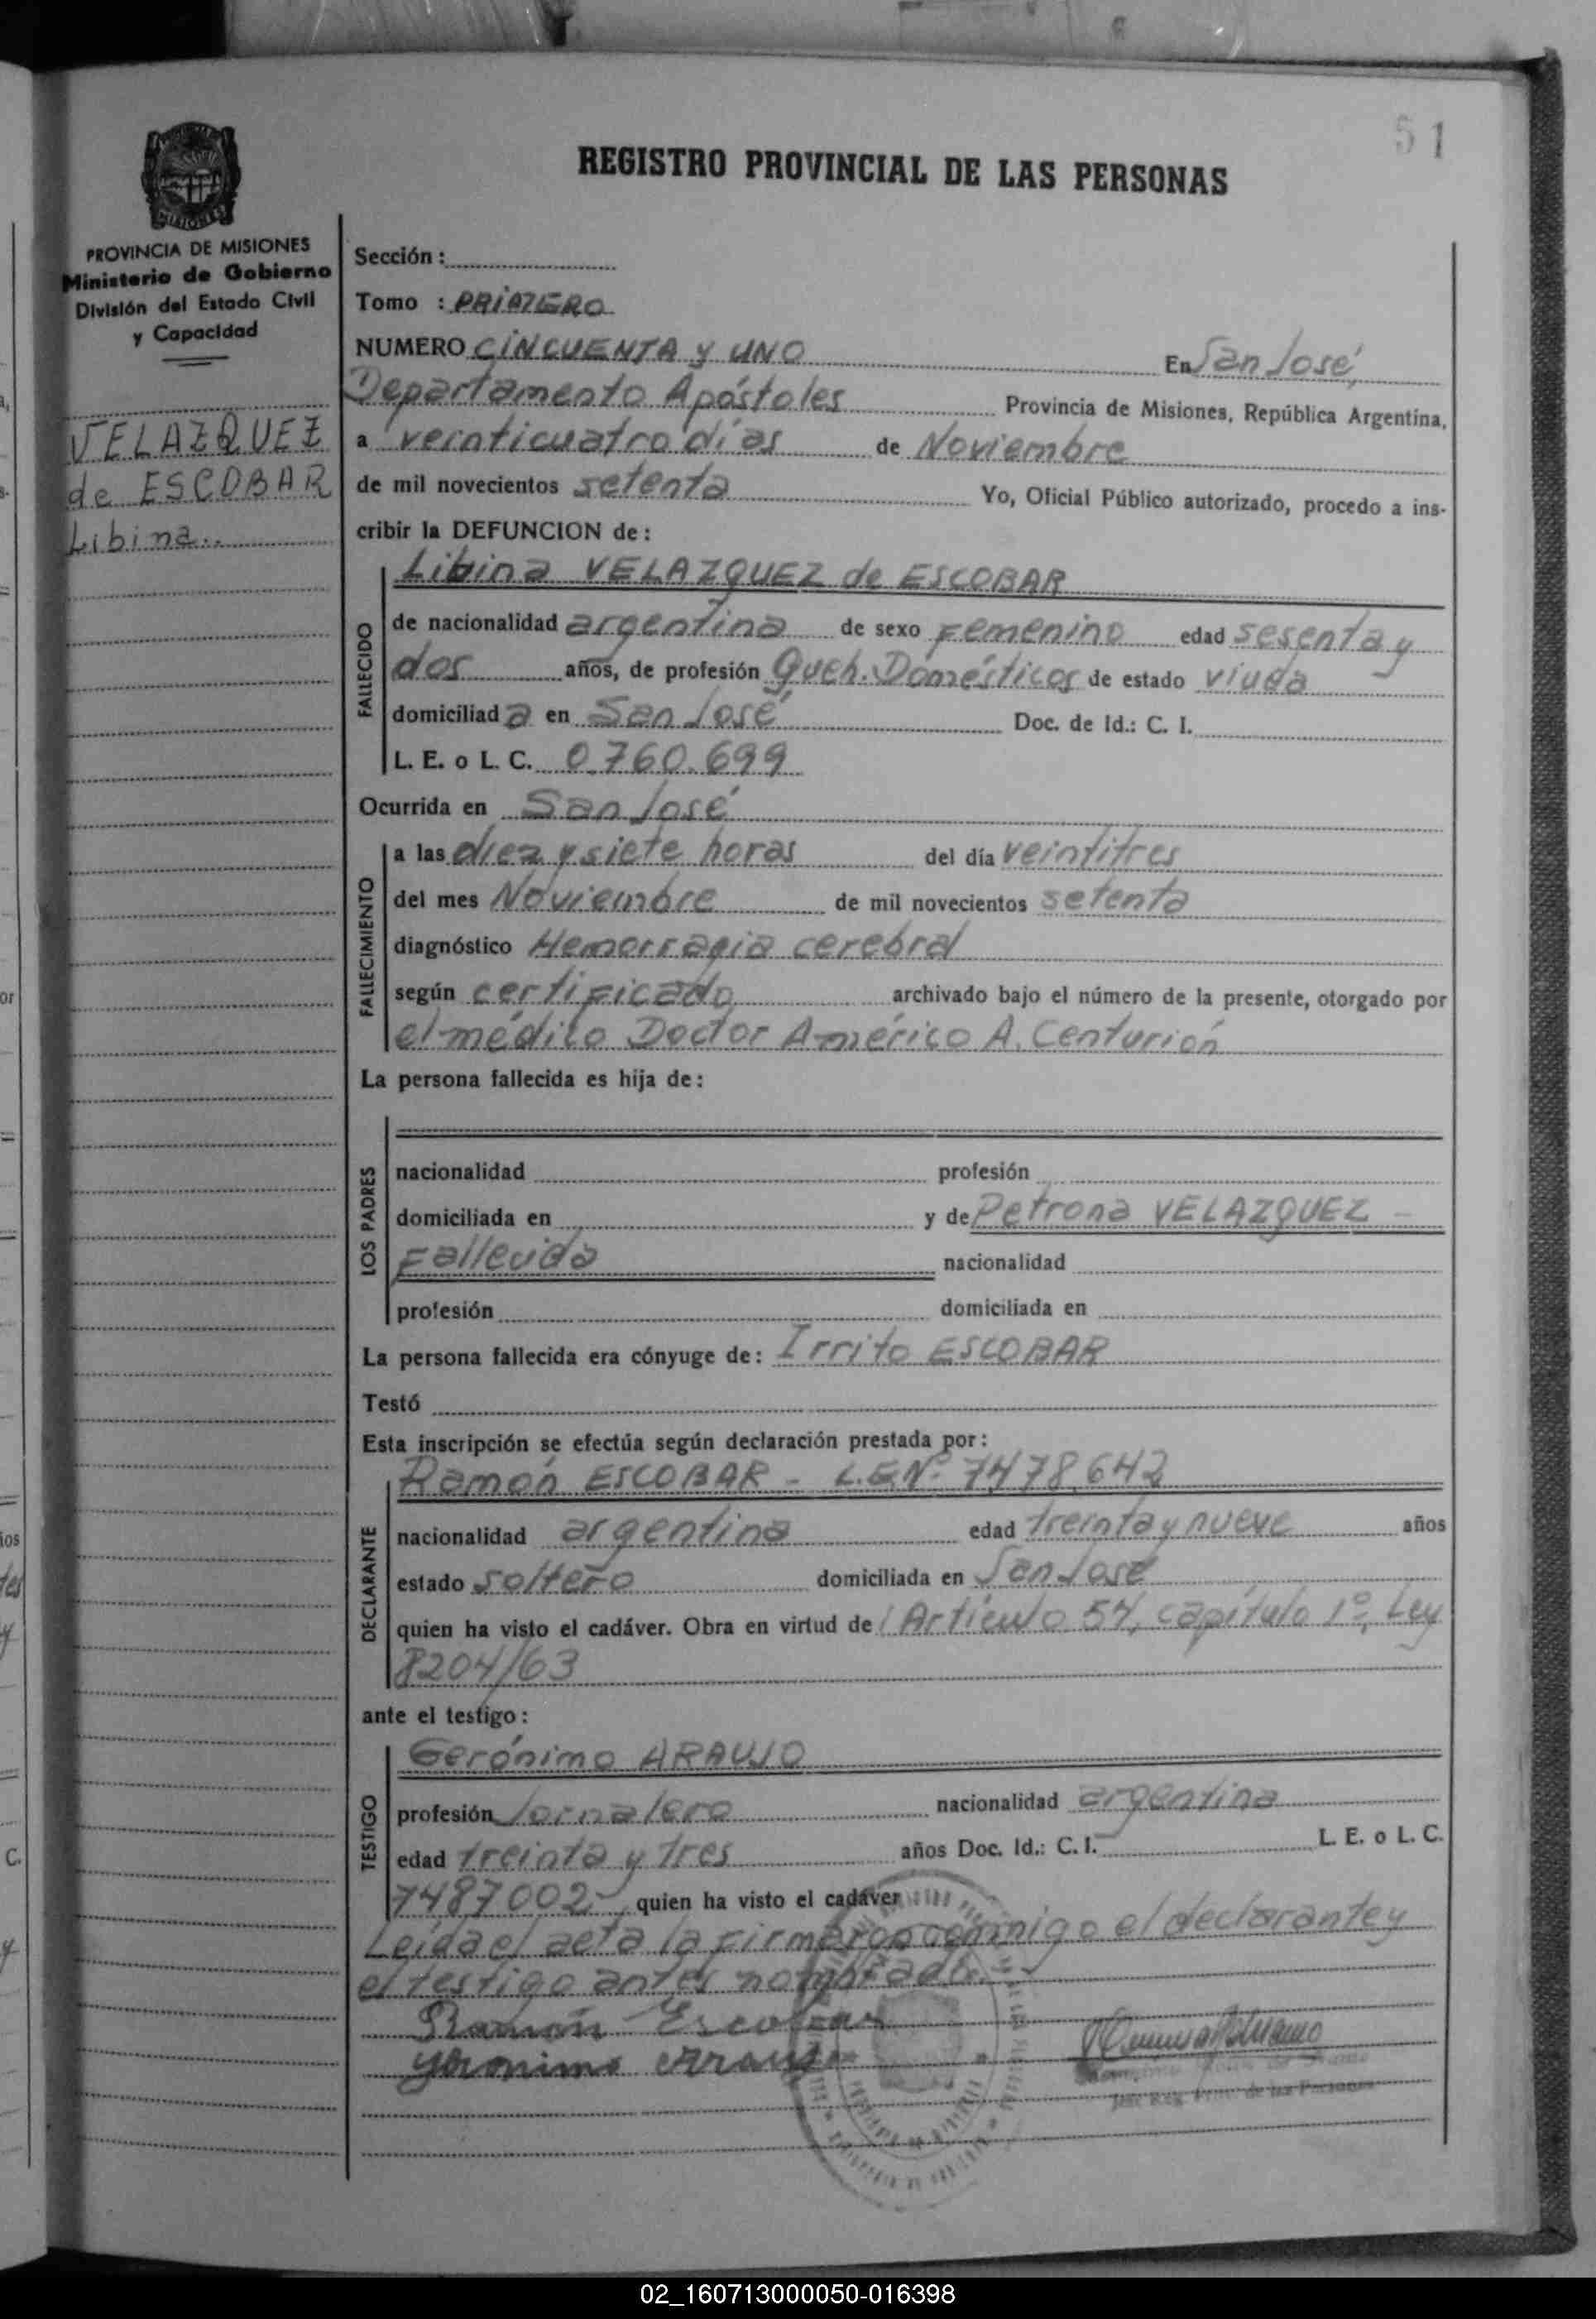 51
REGISTRO PROVINCIAL DE LAS PERSONAS
MISIONES
PROVINCIA DE MISIONES
Ministerio de Gobierno
División del Estado Civil
y Capacidad
VELAZQUEZ
de ESCOBAR
Libina..
Sección :
Tomo : PRIMERO
NUMERO CINCUENTA y UNO En San José,
Departamento Apóstoles Provincia de Misiones, República Argentina,
a veinticuatro días de Noviembre
de mil novecientos setenta Yo, Oficial Público autorizado, procedo a ins-
cribir la DEFUNCION de :
FALLECIDO
Libina VELAZQUEZ de ESCOBAR
de nacionalidad argentina de sexo Femenino edad sesenta y
dos años, de profesión Queh. Domésticos de estado viuda
domiciliada en San José Doc. de Id.: C. I.
L. E. o L. C. 0.760.699
Ocurrida en San José
FALLECIMIENTO
a las diez y siete horas del día veintitres
del mes Noviembre de mil novecientos setenta
diagnóstico Hemorragia cerebral
según certificado archivado bajo el número de la presente, otorgado por
el médico Doctor Américo A. Centurión
La persona fallecida es hija de :
LOS PADRES
nacionalidad profesión
domiciliada en y de Petrona VELAZQUEZ -
Fallecida nacionalidad
profesión domiciliada en
La persona fallecida era cónyuge de : Irrito ESCOBAR
Testó
Esta inscripción se efectúa según declaración prestada por :
DECLARANTE
Ramón ESCOBAR - L.E.Nº 7478642
nacionalidad argentina edad treinta y nueve años
estado soltero domiciliada en San José
quien ha visto el cadáver. Obra en virtud del Artículo 54, capítulo 1º, Ley
8204/63
ante el testigo :
TESTIGO
Gerónimo ARAUJO
profesión Jornalero nacionalidad argentina
edad treinta y tres años Doc. Id.: C. I. L. E. o L. C.
7487002 quien ha visto el cadáver
Leída el acta la firmaron conmigo el declarante y
el testigo antes nombrado.-
Ramón Escobar
Yeronimo Araujo
Jefe Reg. Prov. de las Personas
02_160713000050-016398